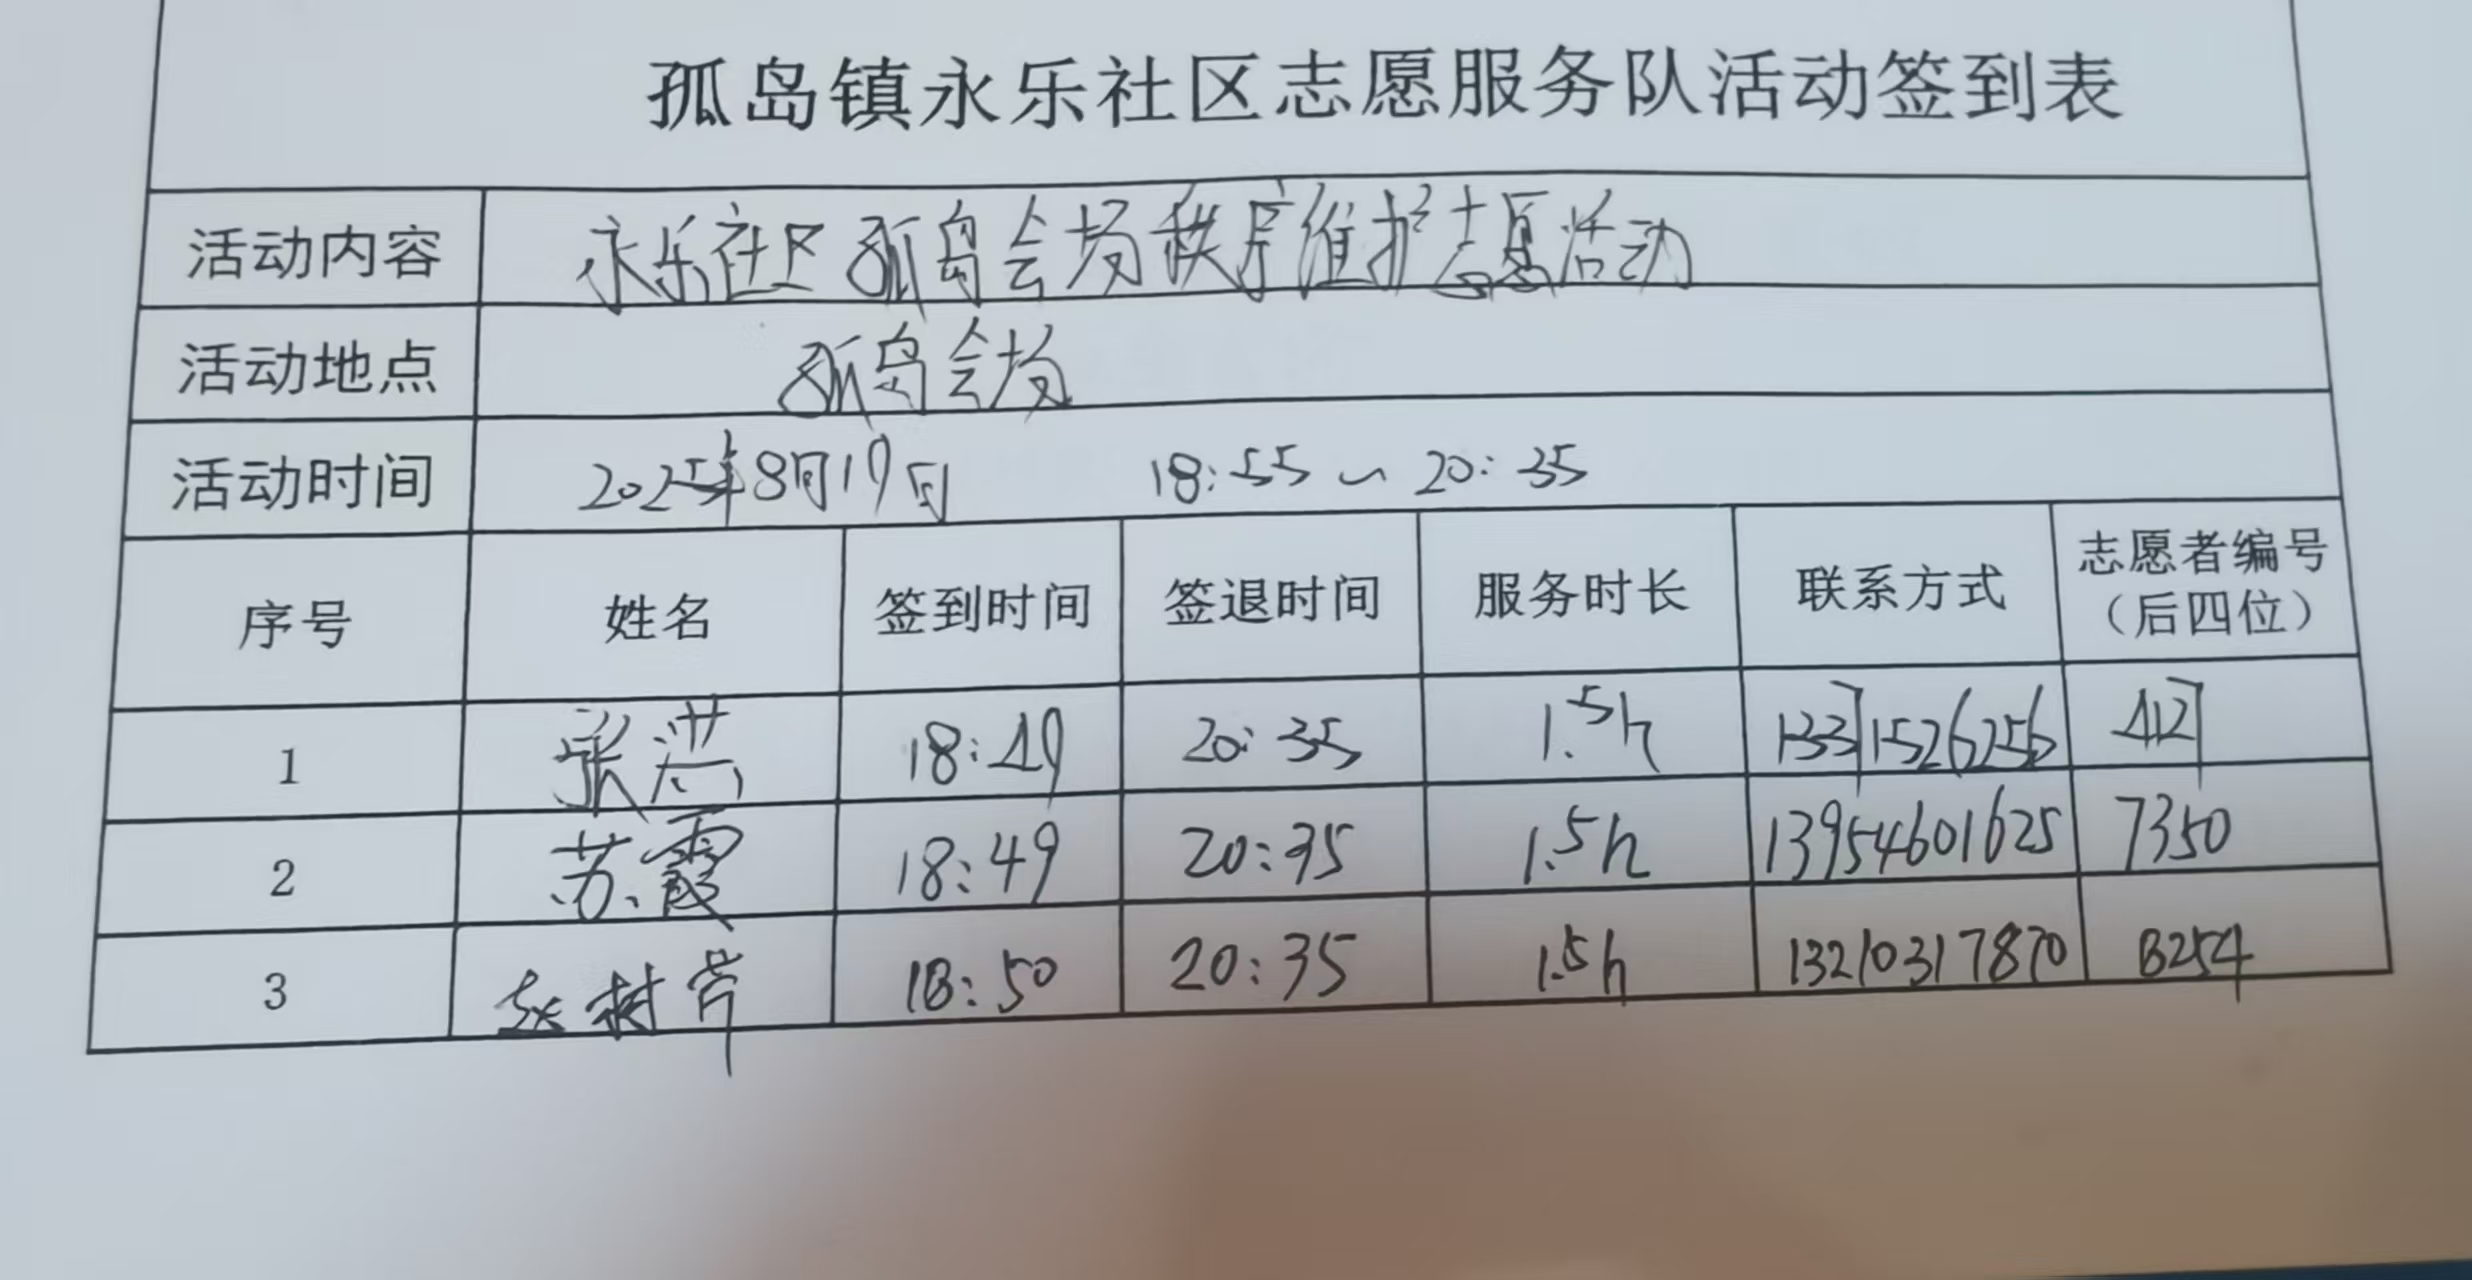 孤岛镇永乐社区志愿服务队活动签到表
活动内容 永乐社区孤岛会场秩序维护志愿活动
活动地点 孤岛会场
活动时间 2025年8月19日 18:55~20:35
序号 姓名 签到时间 签退时间 服务时长 联系方式 志愿者编号(后四位)
1 张洪 18:49 20:35 1.5h 13371526256 4127
2 苏霞 18:49 20:35 1.5h 13954601625 7350
3 18:50 20:35 1.5h 13210317870 8254